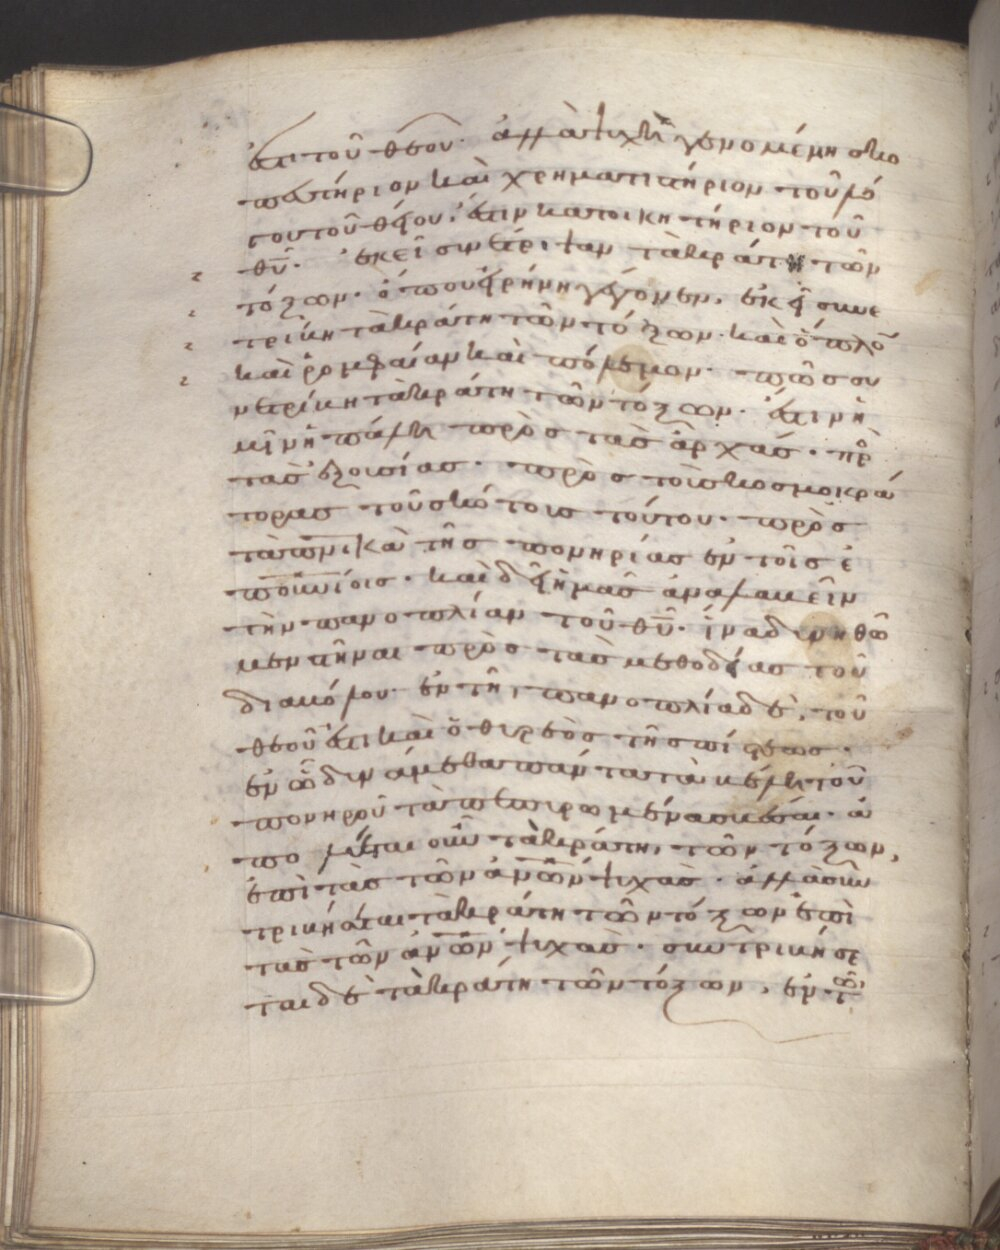 ἐστι τοῦ θεοῦ. ἀλλὰ ψυχὴ γενομένη σκο
πευτήριον καὶ χρηματιστήριον τοῦ λό
γου τοῦ θεοῦ, ἐστιν κατοικητήριον τοῦ
θῦ. ἐκεῖ συνέτριψεν τὰ κράτη τῶν
τόξων. ὅπου εἰρήνη γέγονεν, ἐκεῖ συνε
τρίβη τὰ κράτη τῶν τόξων. καὶ ὅπλον
καὶ ῥομφαίαν καὶ πόλεμον. πῶς συ
νετρίβη τὰ κράτη τῶν τόξων. ἔστιν ἡ
μῖν ἡ πάλη πρὸς τὰς ἀρχάς. πρὸ
τὰς ἐξουσίας. πρὸς τοὺς κοσμοκρά
τορας τοῦ σκότους τούτου. πρὸς
τὰ πνικὰ τῆς πονηρίας ἐν τοῖς ἐ
πουνίοις. καὶ δεῖ ἡμᾶς ἀναλαβεῖν
τὴν πανοπλίαν τοῦ θῦ. ἵνα δυνηθῶ
μεν στῆναι πρὸς τὰς μεθοδείας τοῦ
διαβόλου. ἐν τῆ, πανοπλία δὲ, τοῦ
θεοῦ ἐστι καὶ ὁ θυρεὸς τῆς πίστεως.
ἐν ᾧ δυνάμεθα πάντα τὰ βέλη τοῦ
πονηροῦ τὰ πεπυρωμένα σβέσαι. ἀ
οὖν τὰ κράτη, τῶν τόξων,
ἐπὶ τὰς τῶν ἀνῶν ψυχὰς. ἀλλὰ συν
τριβήσεται τὰ κράτη τῶν τόξων ἐπὶ
τὰς τῶν ἀνῶν ψυχὰς. συντριβήσε
ται δὲ τὰ κράτη τῶν τόξων, ἐν τῶ